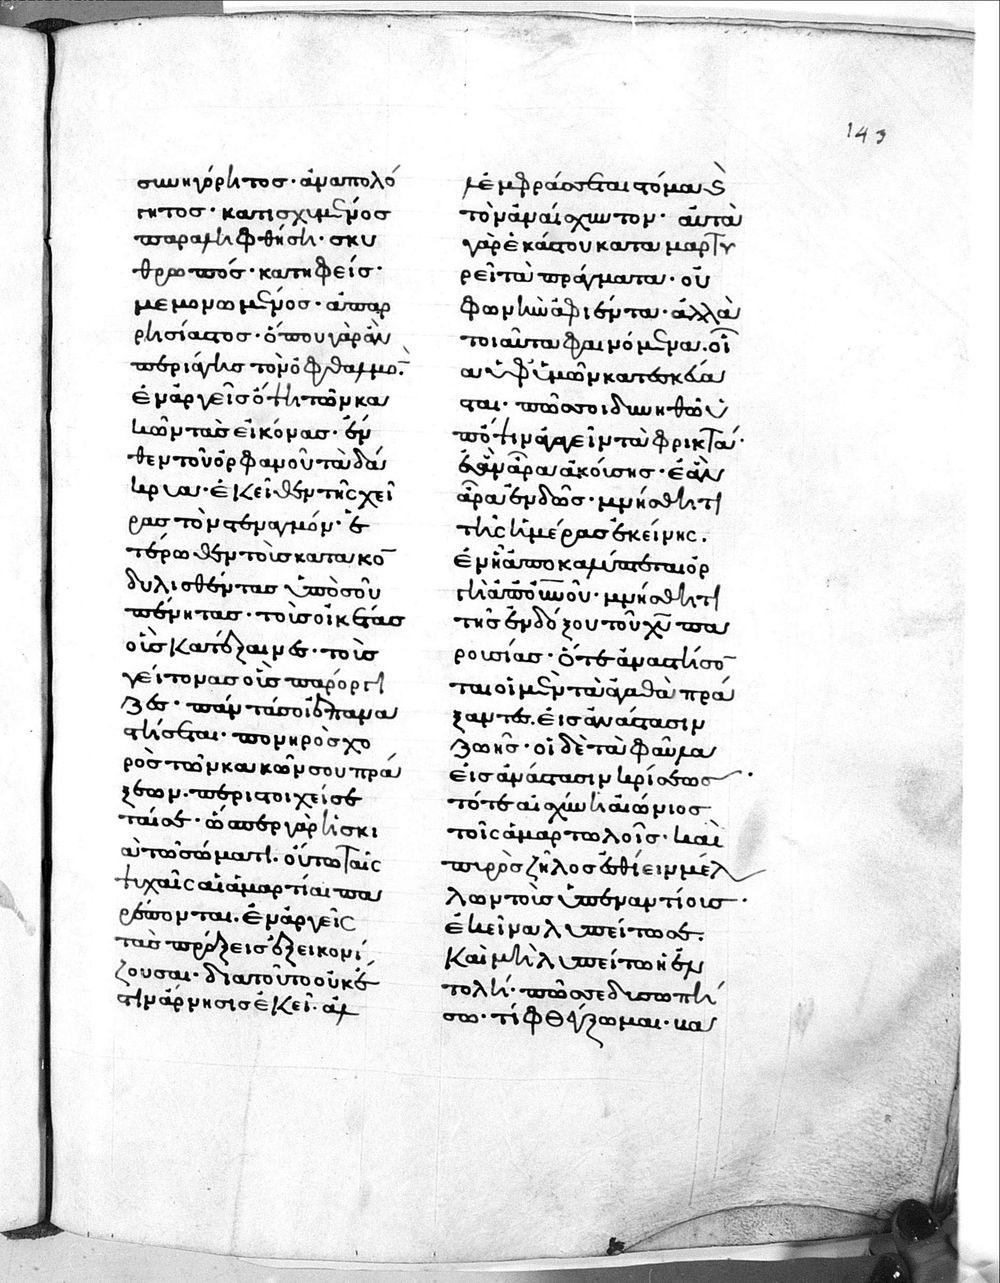 143
συνηγόρητος· ἀναπολό
γητος· κατισχυμμένος
παραληφθήση· σκυ
θρωπός· κατηφείς·
μεμονωμένος· ἀπαρ
ρησίαστος· ὅπου γὰρ ἂν
περιάγης τὸν ὀφθαλμό̅·
ἐναργεῖς ὄψη τῶν κα
κῶν τὰς εἰκόνας· ἔν
θεν τοῦ ὀρφανοῦ τὰ δά
κρυα· ἐκεῖθεν τῆς χεί
ρας τὸν στεναγμόν· ἑ
τέρωθεν τοὺς κατακο̅
δυλισθέντας ὑπὸ σοῦ
πένητας· τοὺς οἰκέτας
οὓς κατέξαινες· τοὺς
γείτονας οὓς παρόργι
ζες· πάντα σοι ἐπανα
στήσεται· πονηρὸς χο
ρὸς τῶν κακῶν σου πρά
ξεων περιστοιχείσε
ταί σε· ὥσπερ γὰρ ἡ σκι
ὰ τῶ σώματι· οὕτω ταῖς
ψυχαῖς αἱ ἁμαρτίαι πα
ρέπονται· ἐναργεῖς
τὰς πράξεις ἐξεικονί
ζουσαι· διατοῦτο οὐκ ἔ
στιν ἄρνησις ἐκεῖ· ἀλλ
ἐμφράσσεται στόμα κ(αὶ)
τὸν ἀναίσχυντον· αὐτὰ
γὰρ ἑκάστου καταμαρτυ
ρεῖ τὰ πράγματα· οὐ
φωνὴν ἀφιέντα· ἀλλὰ
τοιαῦτα φαινόμενα· οἷ
α ὑφ᾽ ὑμῶν κατεσκεύα
σται· πῶς σοι δυνηθῶ ὑ
π᾽ ὄψιν ἀγαγεῖν τὰ φρικτά·
ἐὰν ἄρα ἀκούσης· ἐὰν
ἄρα ἐνδῶς· μνήσθητι
τῆς ἡμέρας ἐκείνης·
ἐν ἧ ἀποκαλύπτεται ὀρ
γὴ ἀπ᾽ οὐ(ρα)νοῦ· μνήσθητι
τῆς ἐνδόξου τοῦ χυ̅ πα
ρουσίας· ὅτε ἀναστήσο̅
ται οἱ μὲν τὰ ἀγαθὰ πρά
ξαντες εἰς ἀνάστασιν
ζωῆς· οἱ δὲ τὰ φαῦλα
εἰς ἀνάστασιν κρίσεως·
τότε αἰσχύνη αἰώνιος
τοῖς ἁμαρτωλοῖς· καὶ
πυρὸς ζῆλος ἐσθίειν μέλ
λων τοὺς ὑπεναντίους·
ἐκεῖνα λυπείτω σε·
καὶ μὴ λυπείτω ἡ ἐν
τολή· πῶς σε δυσωπή
σω· τί φθέγξωμαι· κα